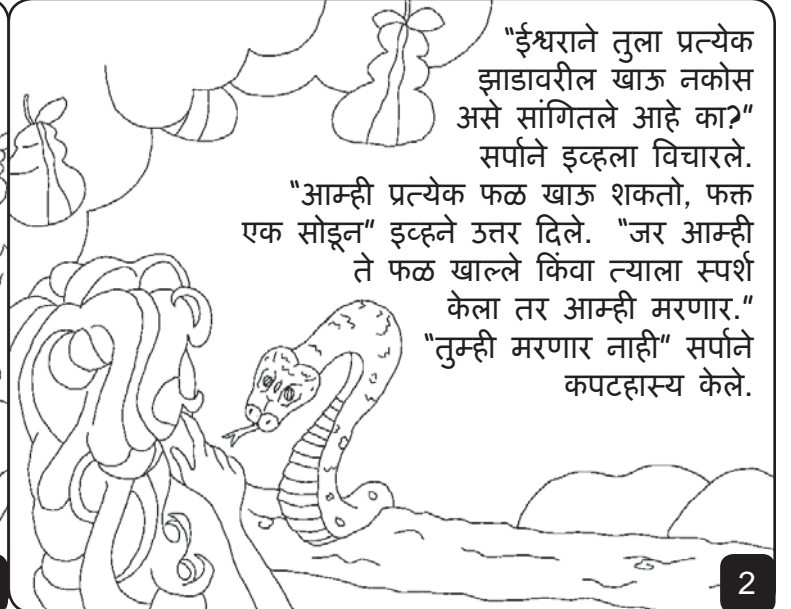 "ईश्वराने तुला प्रत्येक
झाडावरील खाऊ नकोस
असे सांगितले आहे का?"
सर्पाने इव्हला विचारले.
"आम्ही प्रत्येक फळ खाऊ शकतो, फक्त
एक सोडून" इव्हने उत्तर दिले. "जर आम्ही
ते फळ खाल्ले किंवा त्याला स्पर्श
केला तर आम्ही मरणार."
"तुम्ही मरणार नाही" सर्पाने
कपटहास्य केले.
2